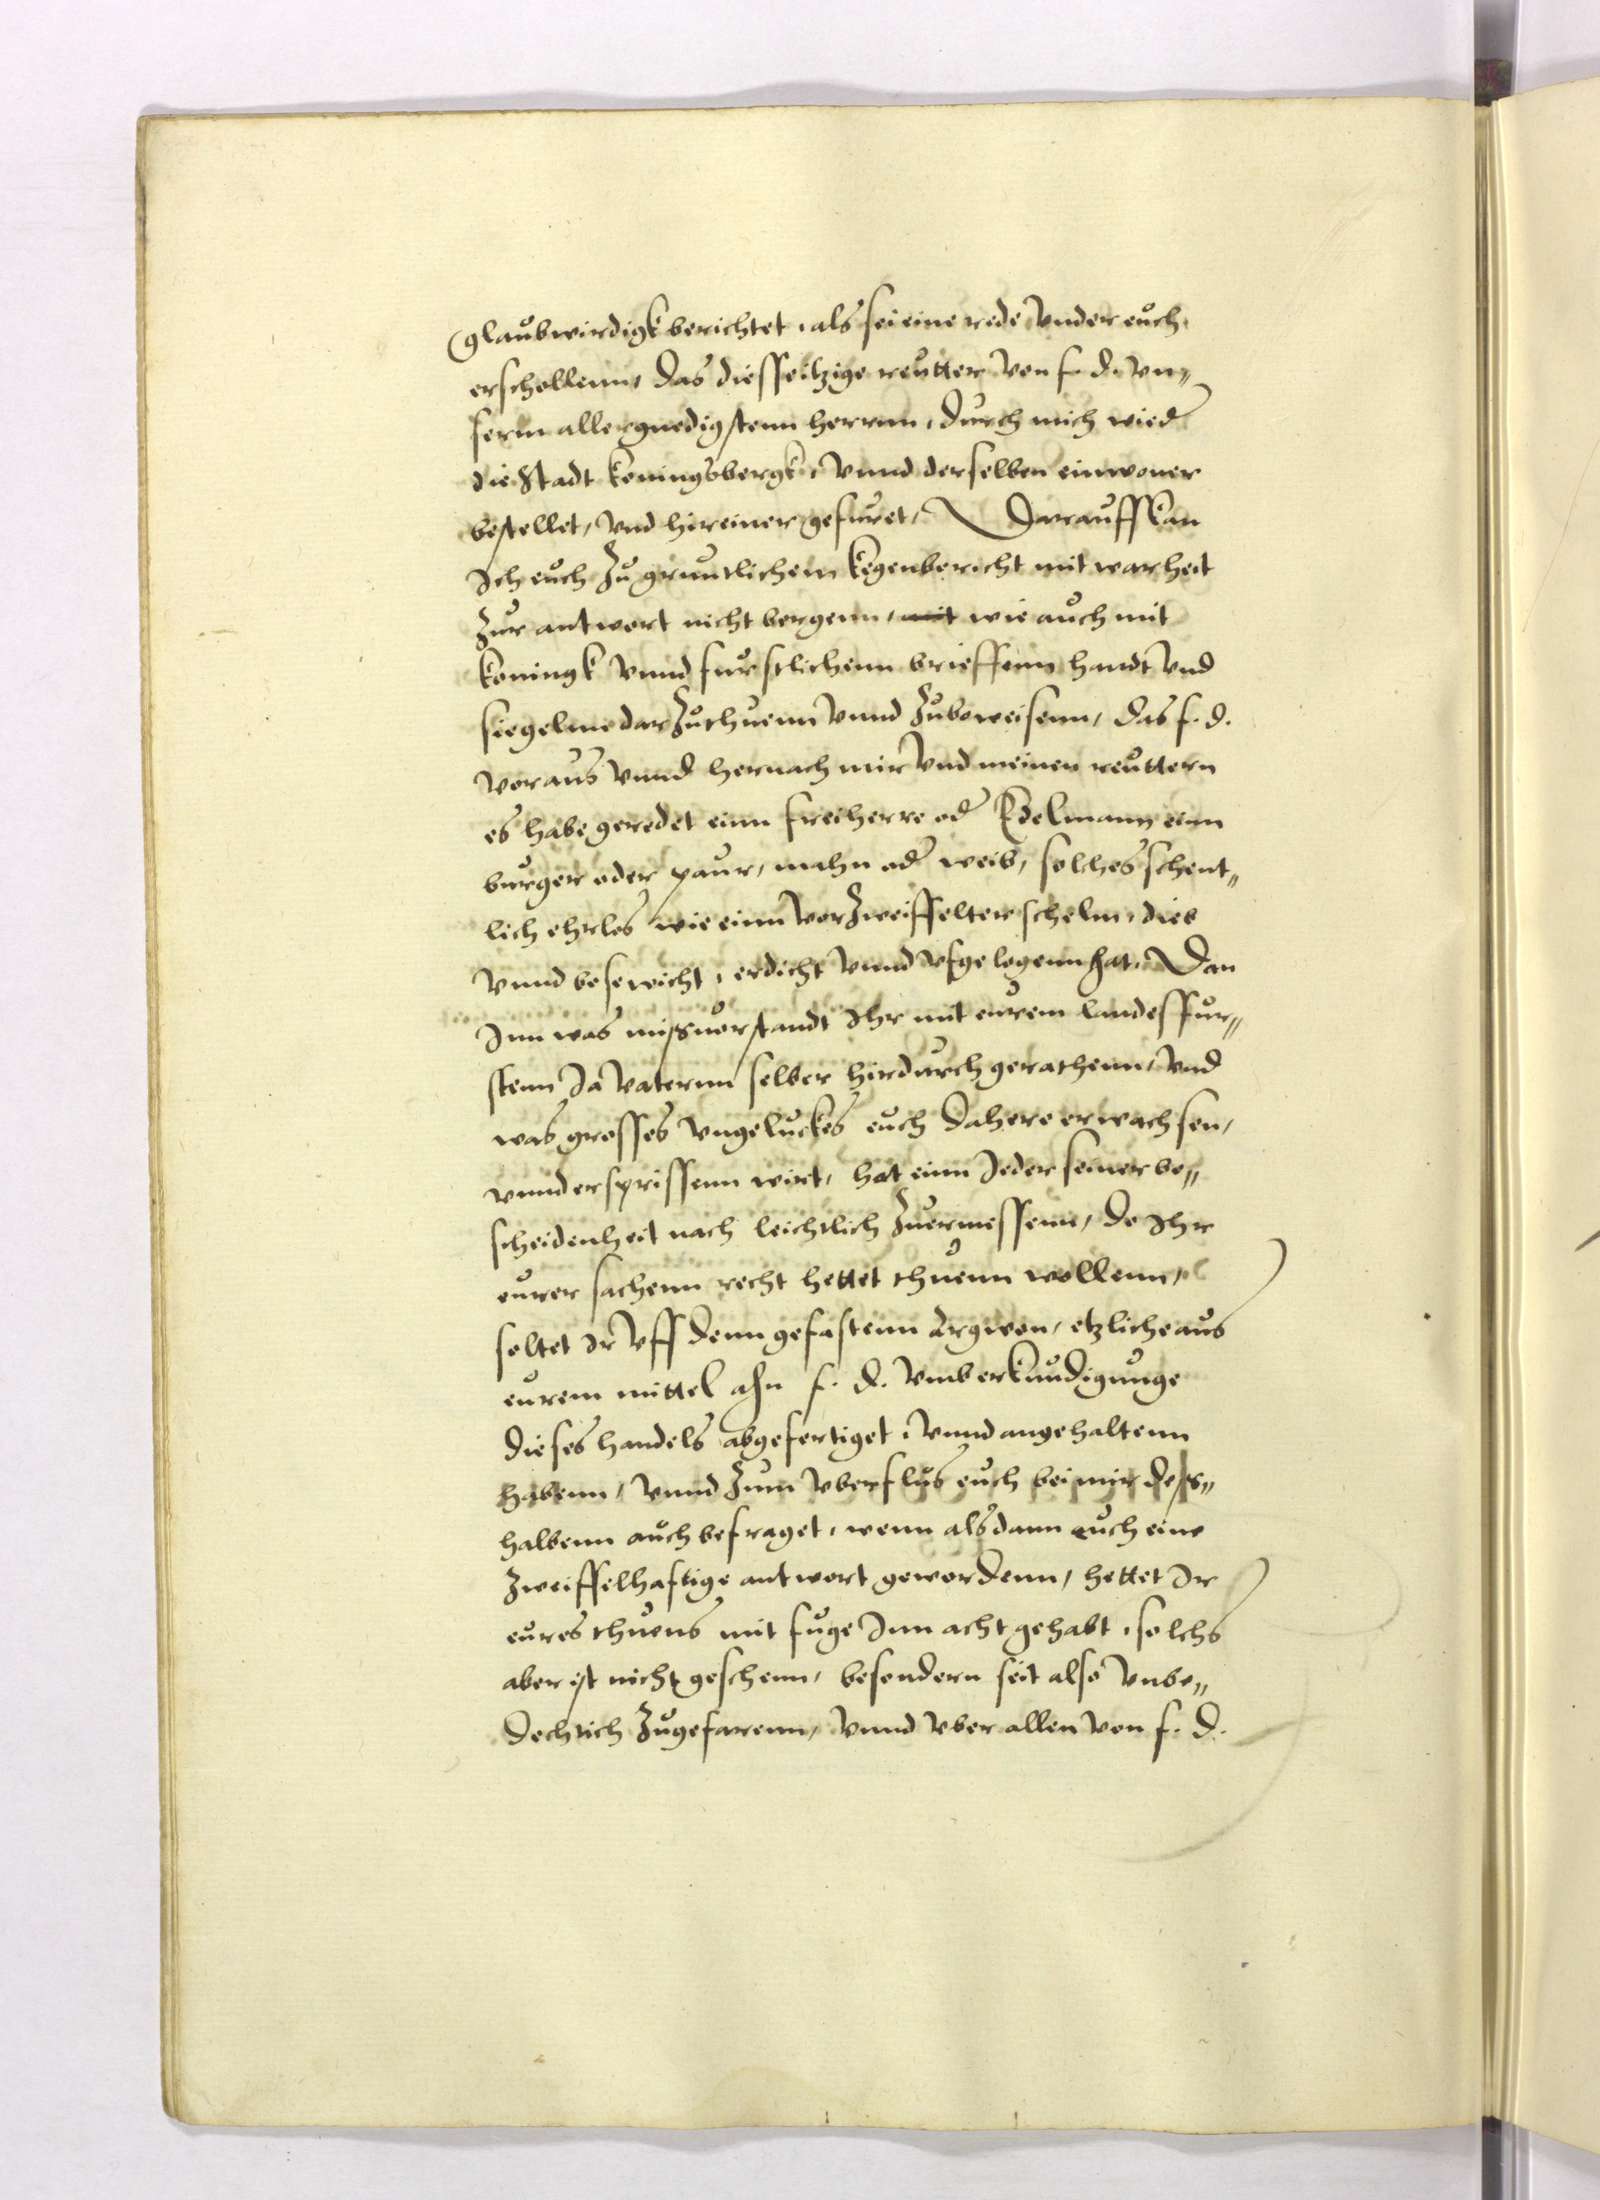 glaubwirdigk berichtet, als sei eine rede vnder euch
erschollenn, das diesseitzige reutter von f. d. vn„
serm allergnedigstenn herrnn, durch mich wied
die Stadt koningsbergk, vnnd derselben einwoner
bestellet, vnd hireiner gefuret, Darauff kan
Ich euch zu gruntlichem kegenbericht mit warheit
zur antwort nicht bergenn, mit wie auch mit
koningk vnnd furstlichenn brieffenn handt vnd
siegelnn darzuthuenn vnnd zubeweisenn, das f. d.
voraus vnnd hernach mir vnd meinen reuttern
es habe geredet einn freiherre od Edelmann einn
burger oder paur, mahn od weib, solches schent„
lich ehrlos wie einn vorzweiffelter schelm, dieb
vnnd bosewicht, erdicht vnnd vfgelogenn hat. Dan
Inn was missuorstandt Ihr mit eurem landesfur„
stenn Ja Vaternn selber hirdurch gerathenn, vnd
was grosses vngeluckes euch dahere erwachsen,
vnnd ersprissenn wirt, hat einn Jeder seiner be„
scheidenheit nach leichtlich zuermessenn, do Ihr
eurer sachenn recht hettet thuenn wollenn,
soltet Ir vff denn gefastenn argwon, etzliche aus
eurem mittel ahn f. d. vmb erkundigunge
dieses handels abgefertiget, vnnd angehaltenn
habenn, vnnd zum vberflus euch bei mir dess„
halbenn auch befraget, wenn alsdann euch eine
zweiffelhaftige antwort gewordenn, hettet Ir
eures thuens mit fuge Inn acht gehabt, solchs
aber ist nicht geschenn, besondern seit also vnbe„
dechtich zugefarenn, vnnd vber allen von f. d.